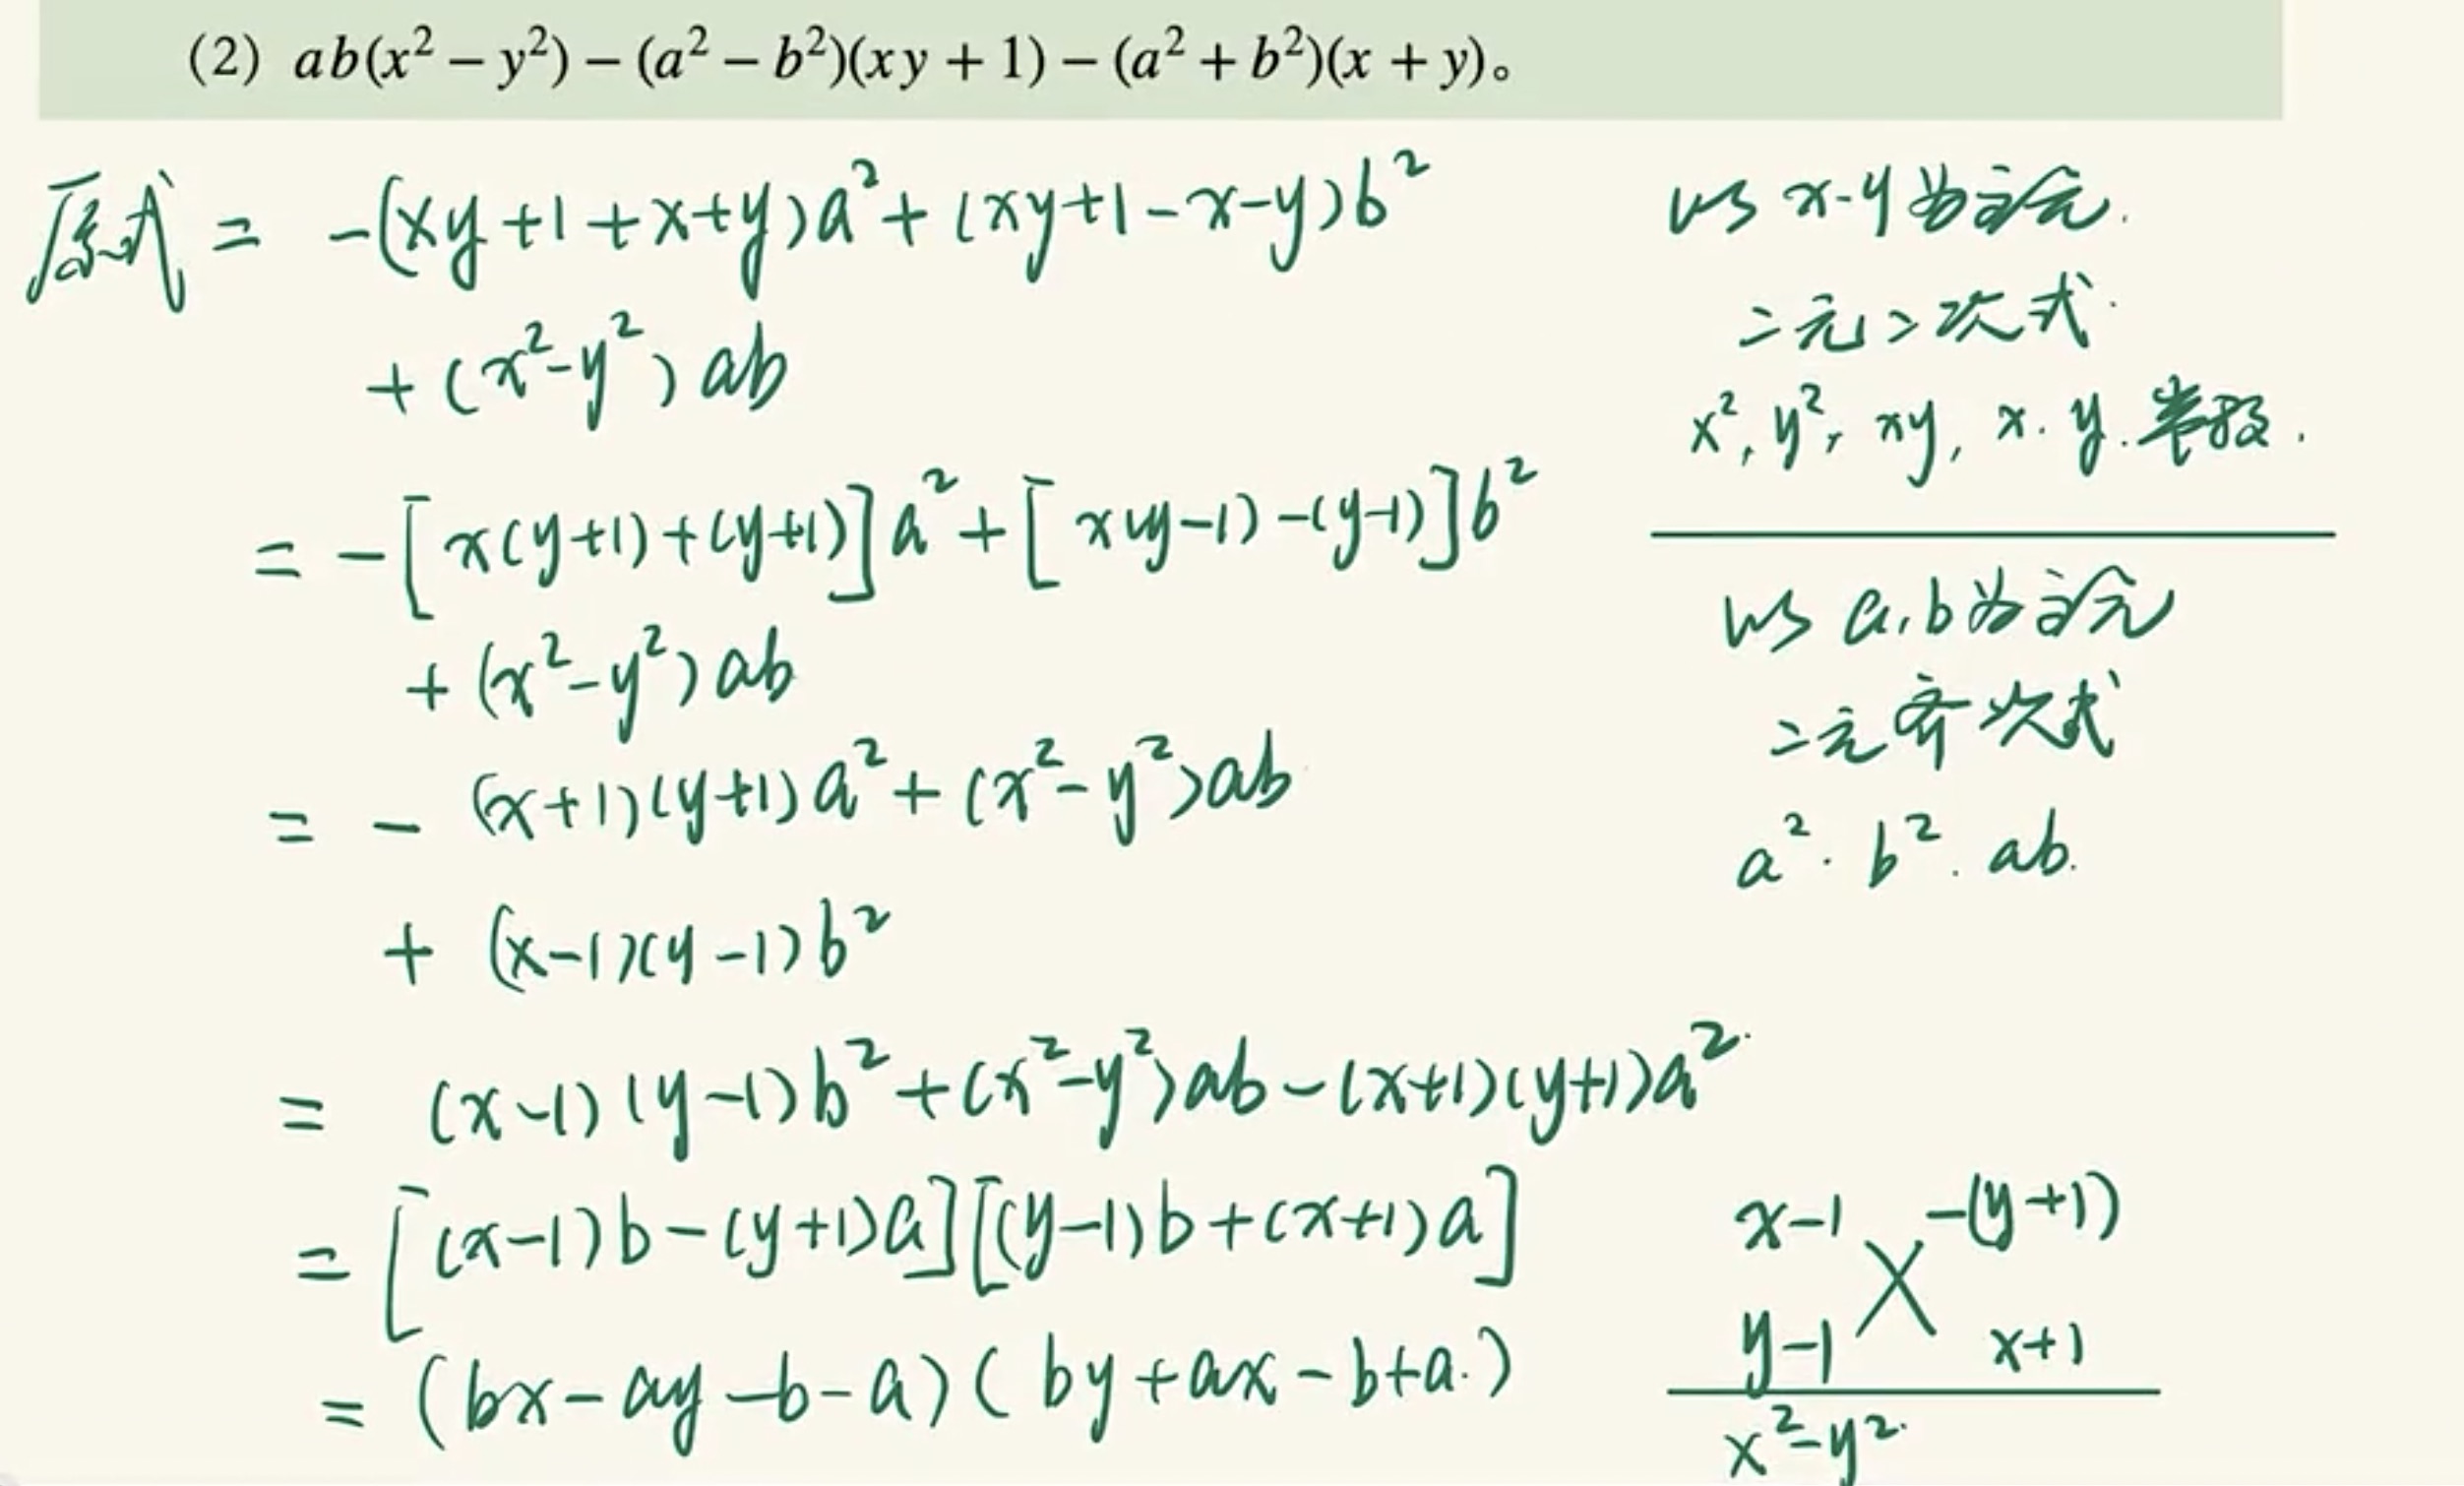 (2) ab(x² − y²) − (a² − b²)(xy + 1) − (a² + b²)(x + y)。
原式 = -(xy+1+x+y)a²+(xy+1-x-y)b²
+(x²-y²)ab
= -[x(y+1)+(y+1)]a²+[x(y-1)-(y-1)]b²
+(x²-y²)ab
= -(x+1)(y+1)a²+(x²-y²)ab
+(x-1)(y-1)b²
= (x-1)(y-1)b²+(x²-y²)ab-(x+1)(y+1)a²
= [(x-1)b-(y+1)a][(y-1)b+(x+1)a]
= (bx-ay-b-a)(by+ax-b+a.)
以 x-y为主元.
二元二次式.
x², y², xy, x. y. 常数.
以 a,b为主元
二元齐次式
a². b². ab.
x-1 -(y+1)
y-1 x+1
x²-y².